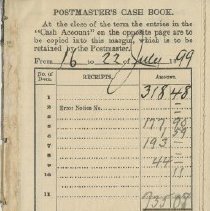 POSTMASTER'S CASH BOOK.
At the close of the term the entries in the
"Cash Account" on the opposite page are to
be copied into this margin, which is to be
retained by the Postmaster.
From 16 to 22 July 99
No. of Item. RECEIPTS. AMOUNT.
1 318 48
2 Error Notice No.
3
4
5
6
7 193 —
8
9 44 —
10
11 735 08